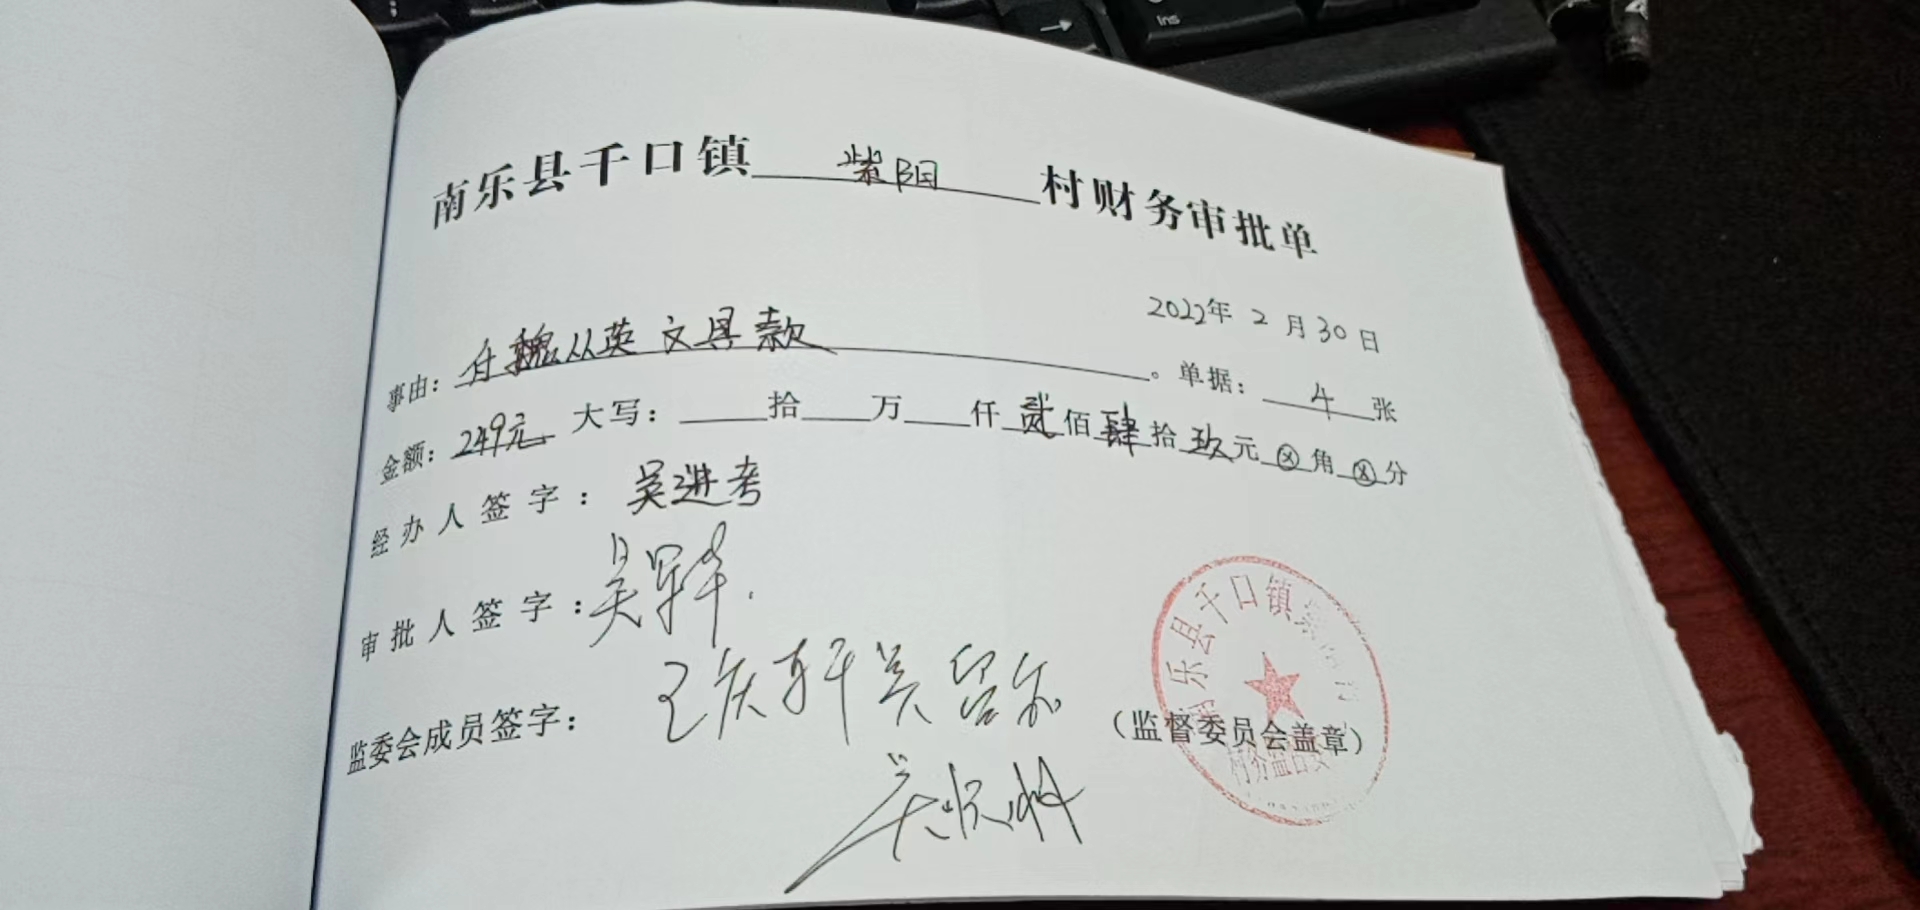 Ins
南乐县千口镇 紫阳 村财务审批单
2022年 2 月 30 日
事由: 付魏从英文具款 。单据: 4 张
金额: 249元 大写: 拾 万 仟 贰 佰 肆 拾 玖 元 ⊗ 角 ⊗ 分
经办人签字: 吴进考
审批人签字: 吴
监委会成员签字: 王庆轩 吴
(监督委员会盖章)
南乐县千口镇